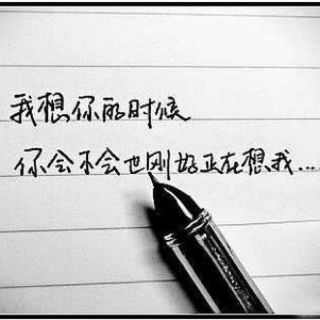 我想你的时候
你会不会也刚好正在想我....